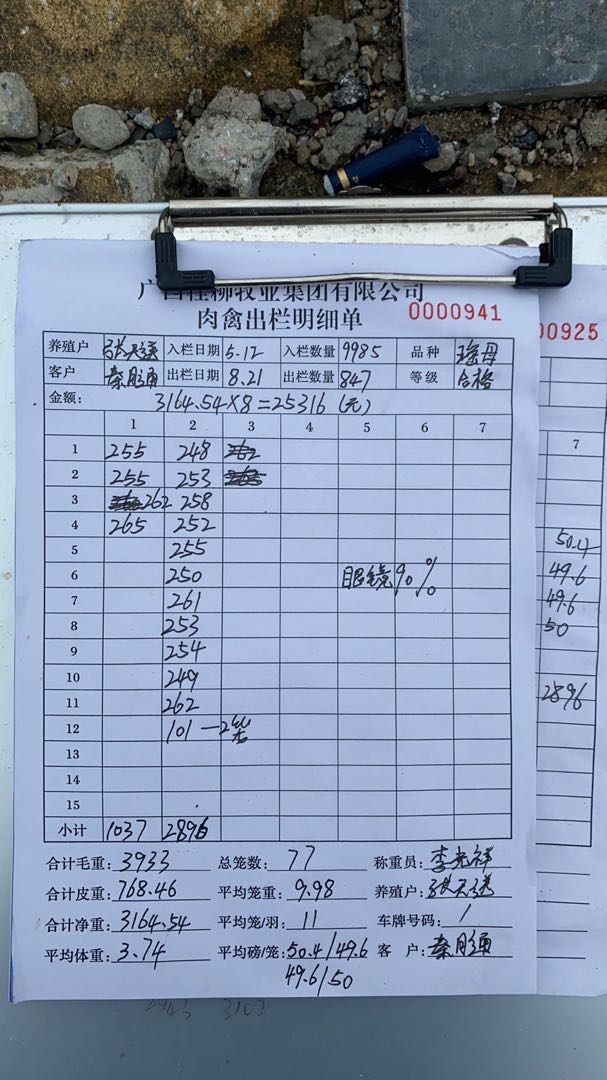 牧业集团有限公司
0000941
肉禽出栏明细单
养殖户 入栏日期 5.12 入栏数量 9985 品种
客户 出栏日期 8.21 出栏数量 847 等级 合格
金额: 3164.54×8=25316 (元)
1 2 3 4 5 6 7
1 255 248
2 255 253
3 262 258
4 265 252
5 255
6 250 眼镜90%
7 261
8 253
9 254
10 249
11 262
12 101 —2笼
13
14
15
小计 1037 2896
合计毛重: 3933 总笼数: 77 称重员: 李光祥
合计皮重: 768.46 平均笼重: 9.98 养殖户:
合计净重: 3164.54 平均笼/羽: 11 车牌号码: /
平均体重: 3.74 平均磅/笼: 50.4/49.6 客 户:
49.6/50
00925
7
50.4
49.6
49.6
50
2896